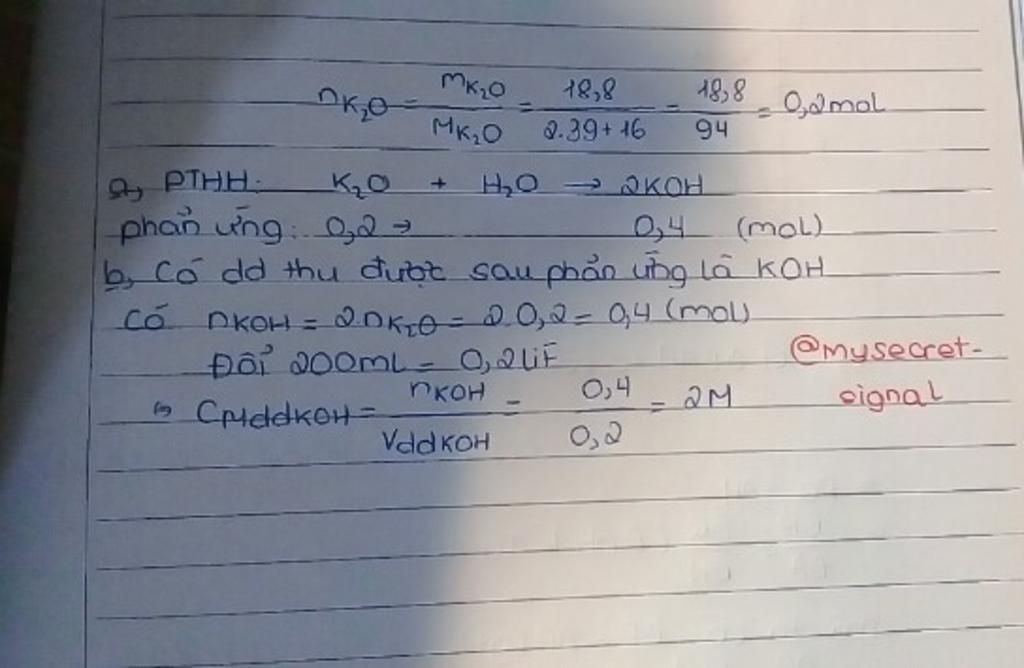 nK₂O = mK₂O / MK₂O = 18,8 / 2.39+16 = 18,8 / 94 = 0,2mol
a, PTHH: K₂O + H₂O → 2KOH
phản ứng: 0,2 → 0,4 (mol)
b, Có dd thu được sau phản ứng là KOH
Có nKOH = 2.nK₂O = 2.0,2 = 0,4 (mol)
Đổi 200ml = 0,2lít
↳ CMddKOH = nKOH / VddKOH = 0,4 / 0,2 = 2M
@mysecret-
signal